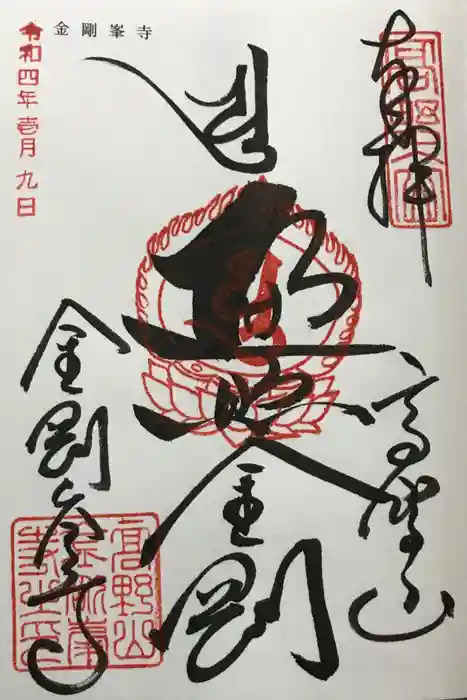 奉拝
高野山
遍照金剛
金剛峯寺
高野山
金剛峯
寺之印
金剛峯寺
令和四年壱月九日